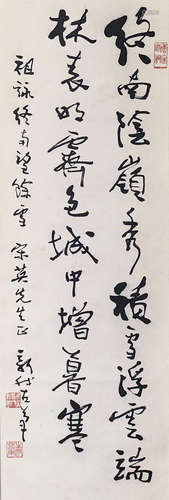 終南陰嶺秀積雪浮雲端
林表明霽色城中增暮寒
祖詠終南望餘雪 宋英先生正